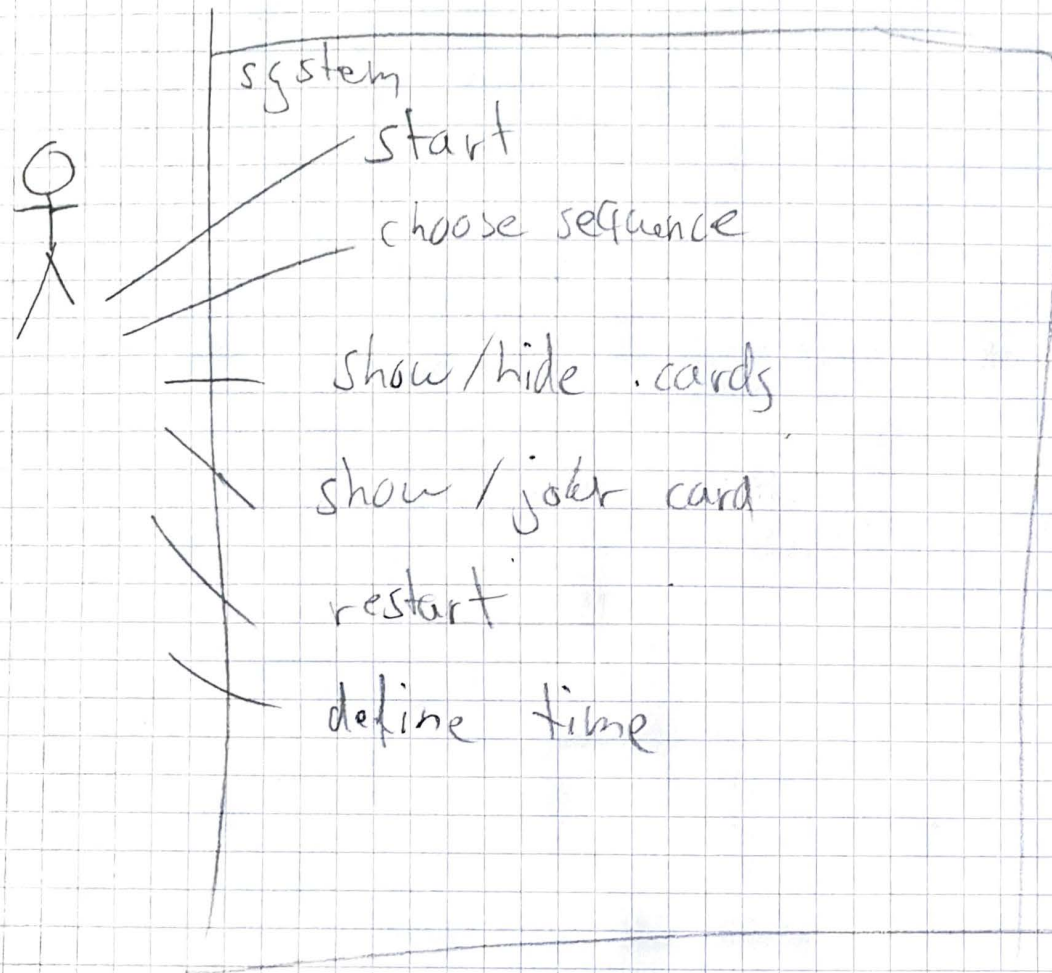 system
start
choose sequence
show/hide cards
show / joker card
restart
define time